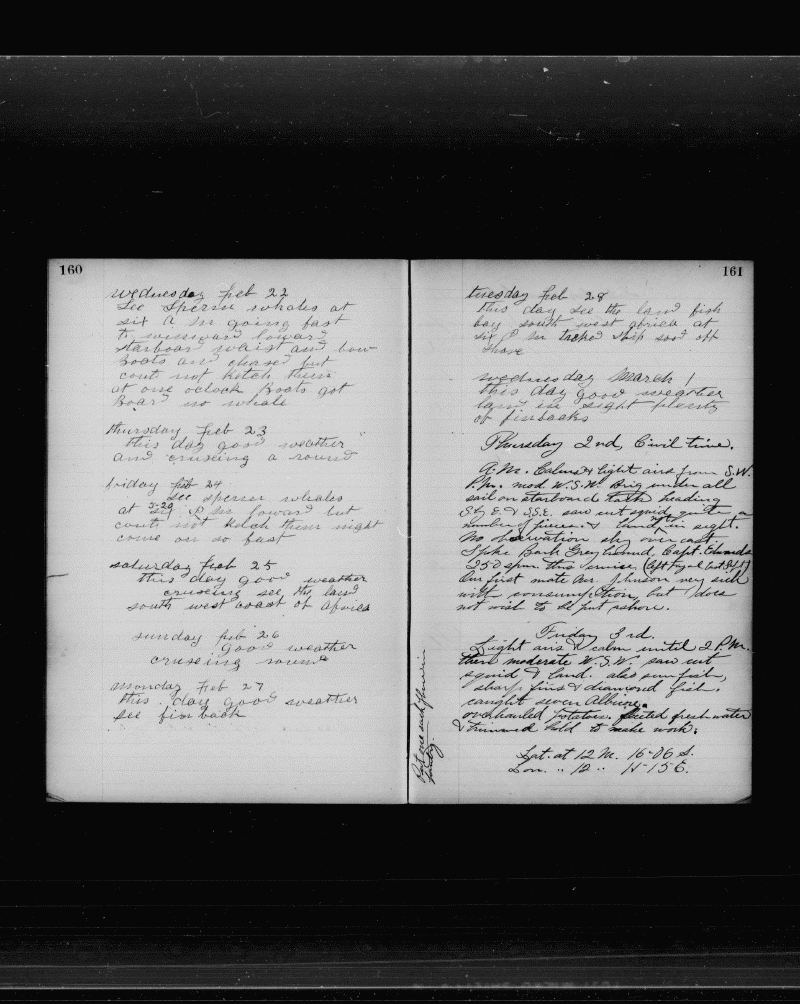 160
wednesday feb 22
See Sperm whales at
six A M going fast
to winward loward
starboard waist and bow
Boats and chased but
coud not ketch them
at one oclock Boats got
Board no whale
thursday feb 23
this day good weather
and cruseing a round
friday feb 24
see sperm whales
at 5-20 P M loward but
coud not ketch them night
come on so fast
saturday feb 25
this day good weather
cruseing see the land
south west coast of africa
sunday feb 26
good weather
cruseing round
monday feb 27
this day good weather
see finback
161
tuesday feb 28
this day see the land fish
bay south west africa at
six P M tacked ship sood off
shore
wednesday March 1
this day good weather
land in sight plenty
of finbacks
Thursday 2nd, Civil time.
A.M. Calms & light airs from S.W.
P.M. mod. W.S.W. Brig under all
sail on starboard tack heading
S by E. & S.S.E. saw cut squid quite a
number of pieces. & land in sight.
No observation sky over cast.
Spoke Bark Greyhound, Capt. Edwards
250 sperm this
Our first mate Mr. Johnson very sick
with consumption, but does
not wish to be put ashore.
Friday 3rd.
Light airs & calm until 2 P.M.
then moderate W.S.W. saw cut
squid & land. also sun fish,
sharp fins & diamond fish.
caught seven Albicore.
overhauled potatoes. fleeted fresh water
& trimmed hold to make work.
Lat. at 12 M. 16-06 S.
Lon. " 12 " 11-15 E.